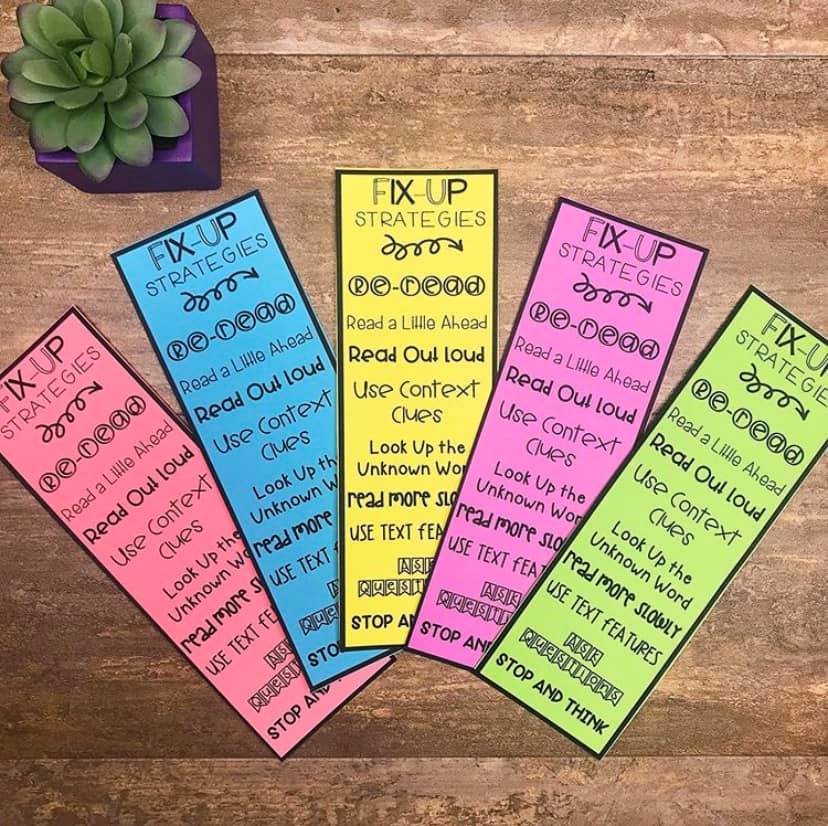 FIX-UP
STRATEGIES
Re-read
Read a Little Ahead
Read Out loud
Use Context
Clues
Look Up the
Unknown Wo
read more slo
USE TEXT FE
ASK
QUESTI
STOP AND T
FIX-UP
STRATEGIES
Re-read
Read a Little Ahead
Read Out loud
Use Context
Clues
Look Up th
Unknown W
read more
USE TEXT F
AS
QUES
STOP
FIX-UP
STRATEGIES
Re-read
Read a Little Ahead
Read Out loud
Use Context
Clues
Look Up the
Unknown Wor
read more slo
USE TEXT FEA
ASK
QUESTI
STOP AN
FIX-UP
STRATEGIES
Re-read
Read a Little Ahead
Read Out loud
Use Context
Clues
Look Up the
Unknown Wor
read more slo
USE TEXT FEA
ASK
QUESTI
STOP AN
FIX-U
STRATEGIE
Re-read
Read a Little Ahead
Read Out loud
Use Context
Clues
Look Up the
Unknown Word
read more slowly
USE TEXT FEATURES
ASK
QUESTIONS
STOP AND THINK